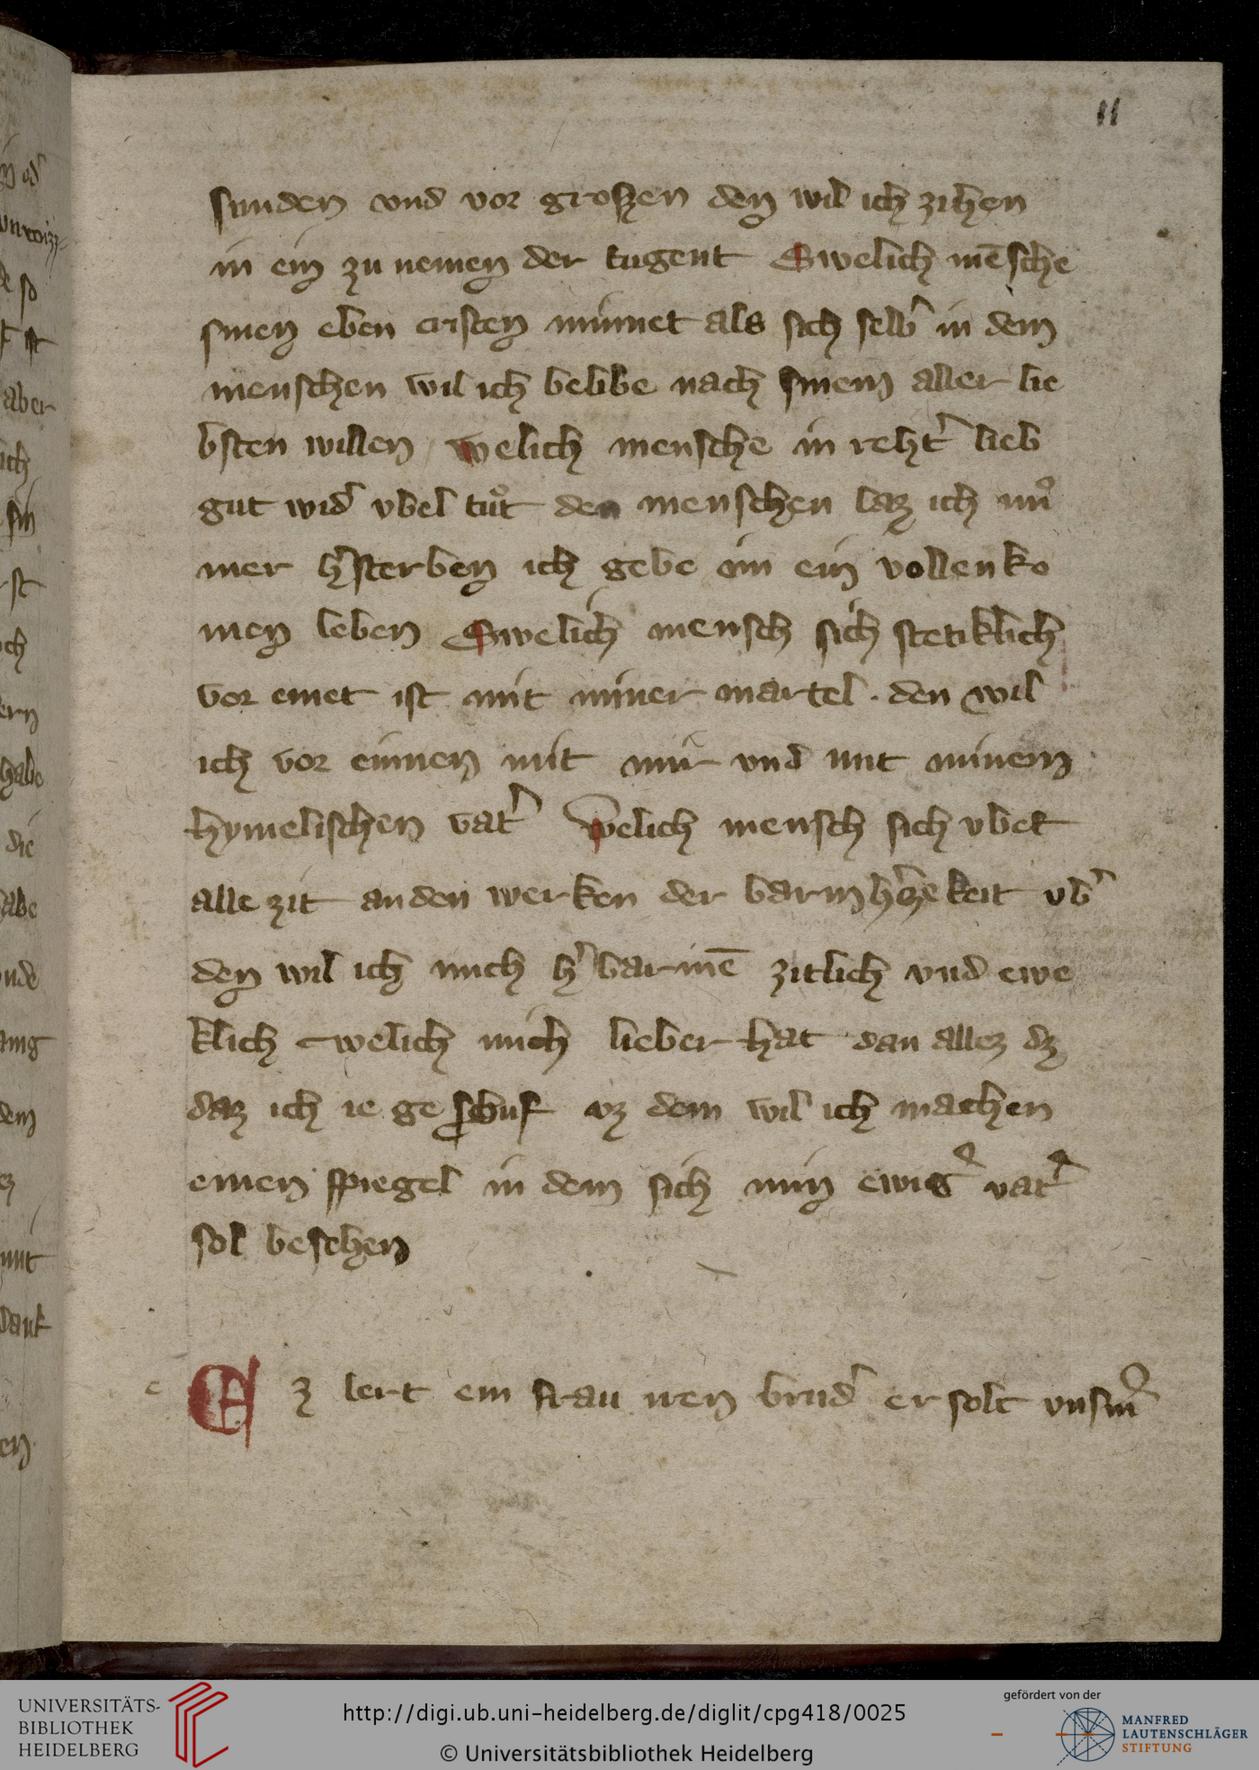 11
sunden vnd vor groszen den wil ich zihen
in ein zu nemen der tugent Swelich mē sche
sinen eben cristen minnet als sich selb' in dem
menschen wil ich belibe nach sinem aller lie
bsten willen welich mensche in reht' lieb
gut wid' vbel tuͦt den menschen laz ich
mer h'sterben ich gebe im ein vollenko
men leben Swelich mensch sich stetiklich
vor einet ist mit miner martel . den wil
ich vor einnen mit mir vnd mit minem
hymelischen vat' welich mensch sich vbet
alle zit an den werken der barmh'zekeit vb'
den wil ich mich h'barmē zitlich vnd ewe
klich welich mich lieber hat dan allez dz
daz ich ie ge schuf vz dem wil ich machen
einen spiegel in dem sich min ewig' vat'
sol besehen
e Ez lert ein frau wen brud' er solt
UNIVERSITÄTS-
BIBLIOTHEK
HEIDELBERG
http://digi.ub.uni-heidelberg.de/diglit/cpg418/0025
© Universitätsbibliothek Heidelberg
gefördert von der
MANFRED
LAUTENSCHLÄGER
STIFTUNG